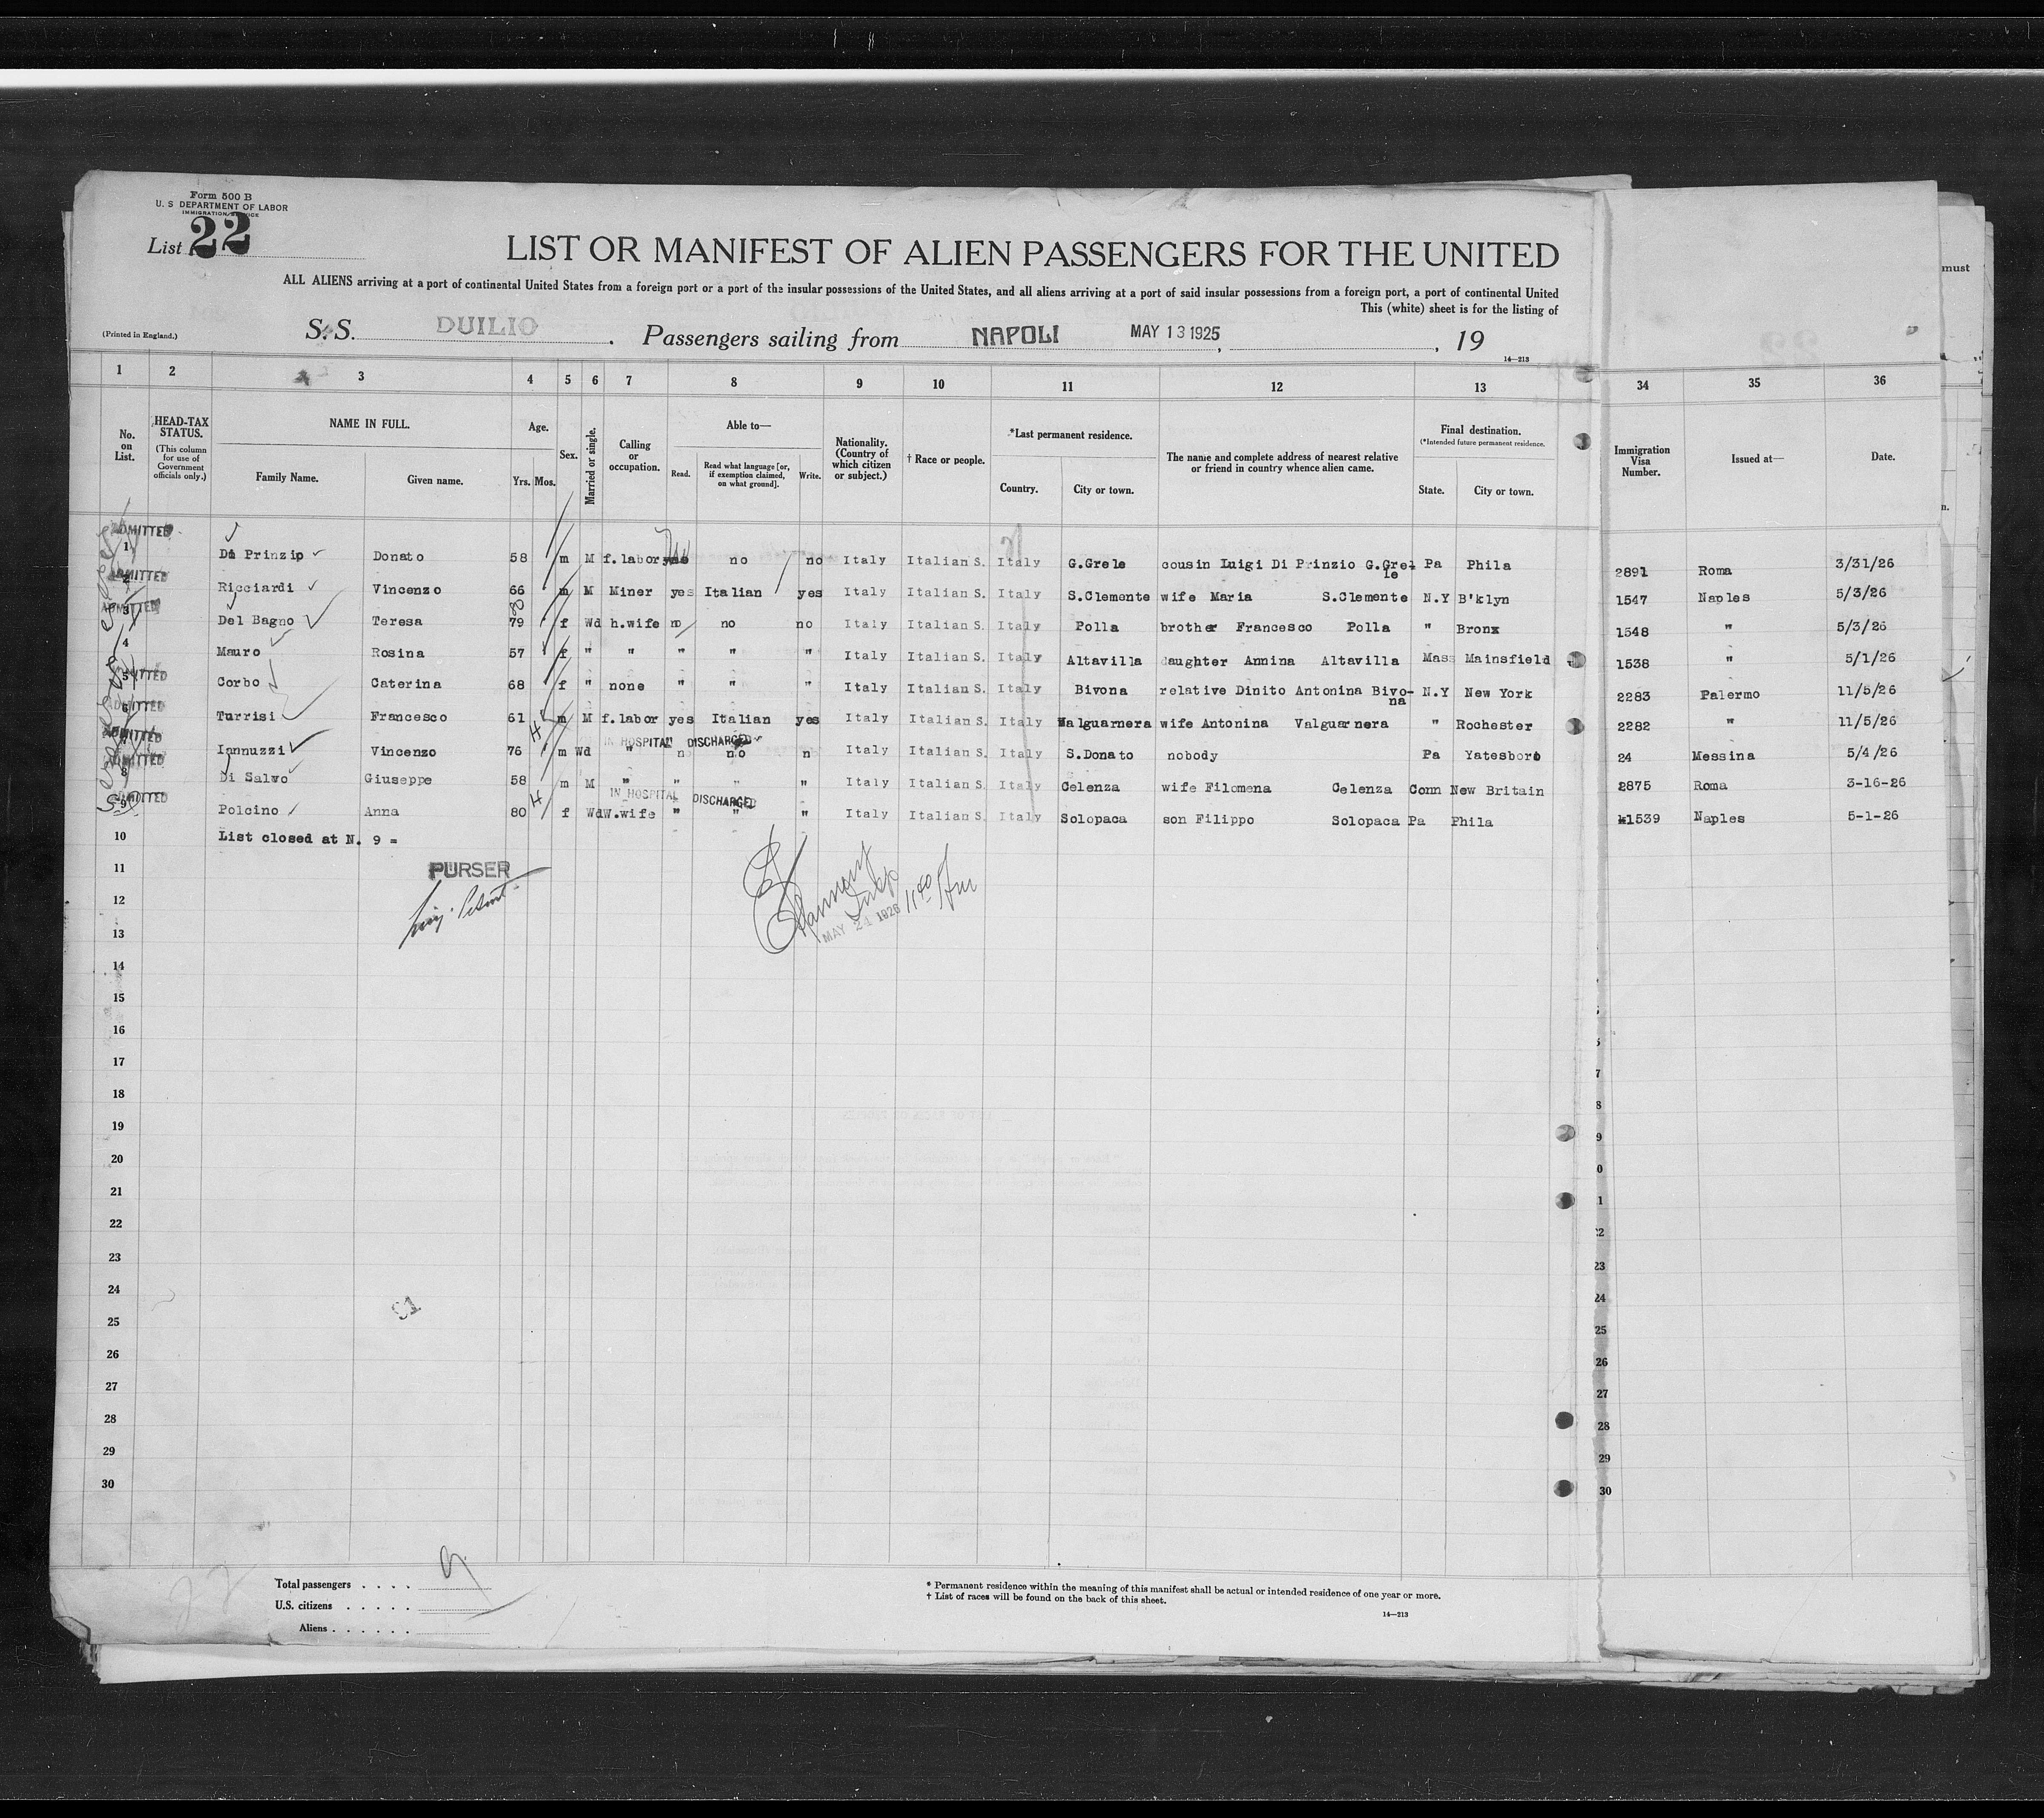 Form 500 B
U. S DEPARTMENT OF LABOR
IMMIGRATION SERVICE
List 22
LIST OR MANIFEST OF ALIEN PASSENGERS FOR THE UNITED
must
ALL ALIENS arriving at a port of continental United States from a foreign port or a port of the insular possessions of the United States, and all aliens arriving at a port of said insular possessions from a foreign port, a port of continental United
This (white) sheet is for the listing of
(Printed in England.) S. S. DUILIO . Passengers sailing from NAPOLI MAY 13 1925 , , 19
14—213
1 2 3 4 5 6 7 8 9 10 11 12 13 34 35 36
No. on List. HEAD-TAX STATUS. (This column for use of Government officials only.) NAME IN FULL. Family Name. Given name. Age. Yrs. Mos. Sex. Married or single. Calling or occupation. Able to— Read. Read what language [or, if exemption claimed, on what ground]. Write. Nationality. (Country of which citizen or subject.) † Race or people. *Last permanent residence. Country. City or town. The name and complete address of nearest relative or friend in country whence alien came. Final destination. (*Intended future permanent residence. State. City or town. Immigration Visa Number. Issued at— Date.
ADMITTED
1 Di Prinzio Donato 58 m M f.labor no no Italy Italian S. Italy G.Grele cousin Luigi Di Prinzio G.Grele Pa Phila 2891 Roma 3/31/26
ADMITTED
2 Ricciardi Vincenzo 66 m M Miner yes Italian yes Italy Italian S. Italy S.Clemente wife Maria S.Clemente N.Y B'klyn 1547 Naples 5/3/26
ADMITTED
3 Del Bagno Teresa 79 80 f Wd h.wife no no no Italy Italian S. Italy Polla brother Francesco Polla " Bronx 1548 " 5/3/26
4 Mauro Rosina 57 f " " " " " Italy Italian S. Italy Altavilla daughter Annina Altavilla Mass Mainsfield 1538 " 5/1/26
ADMITTED
5 Corbo Caterina 68 f " none " " " Italy Italian S. Italy Bivona relative Dinito Antonina Bivo-na N.Y New York 2283 Palermo 11/5/26
ADMITTED
6 Turrisi Francesco 61 m M f.labor yes Italian yes Italy Italian S. Italy Valguarnera wife Antonina Valguarnera " Rochester 2282 " 11/5/26
ADMITTED IN HOSPITAL DISCHARGED
7 Iannuzzi Vincenzo 76 m Wd " n no n Italy Italian S. Italy S.Donato nobody Pa Yatesboro 24 Messina 5/4/26
ADMITTED
8 Di Salvo Giuseppe 58 m M " " " " Italy Italian S. Italy Celenza wife Filomena Celenza Conn New Britain 2875 Roma 3-16-26
ADMITTED IN HOSPITAL DISCHARGED
9 Polcino Anna 80 f Wd W.wife " " " Italy Italian S. Italy Solopaca son Filippo Solopaca Pa Phila 1539 Naples 5-1-26
10 List closed at N. 9 =
11 PURSER
12
13 MAY 21 1926 11 40 AM
14
15
16
17
18
19
20
21
22
23
24
25
26
27
28
29
30
Total passengers . . . . 9
U.S. citizens . . . . .
Aliens . . . . . .
* Permanent residence within the meaning of this manifest shall be actual or intended residence of one year or more.
† List of races will be found on the back of this sheet.
14—213